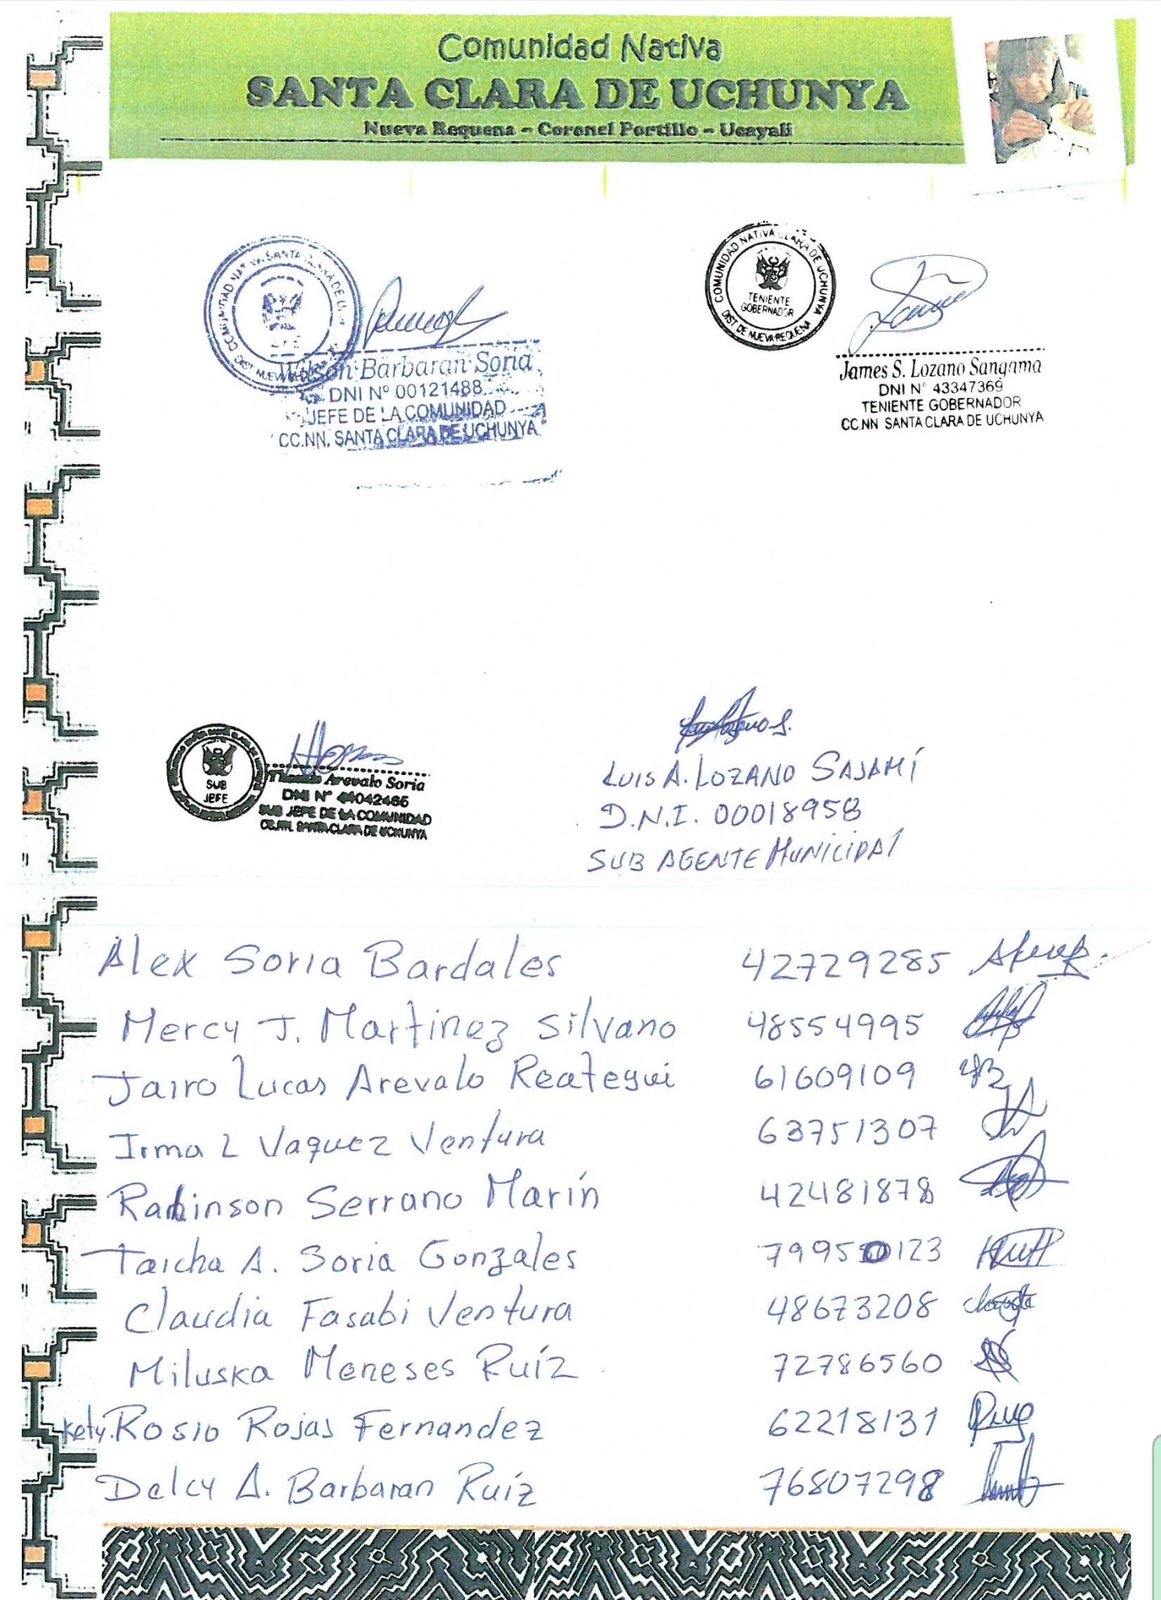 Comunidad Nativa
SANTA CLARA DE UCHUNYA
Nueva Requena – Coronel Portillo – Ucayali
COMUNIDAD NATIVA SANTA CLARA DE
DIST NUEVA
Wilson Barbaran Soria
DNI Nº 00121488
JEFE DE LA COMUNIDAD
CC.NN. SANTA CLARA DE UCHUNYA
COMUNIDAD NATIVA CLARA DE UCHUNYA
TENIENTE
GOBERNADOR
DIST. DE NUEVA REQUENA
James S. Lozano Sangama
DNI N° 43347369
TENIENTE GOBERNADOR
CC.NN SANTA CLARA DE UCHUNYA
SUB
JEFE
Arevalo Soria
DNI N° 44042465
SUB JEFE DE LA COMUNIDAD
CC.NN. SANTA CLARA DE UCHUNYA
LUIS A. LOZANO SAJAMÍ
D.N.I. 00018958
SUB AGENTE MUNICIPAL
Alex Soria Bardales 42729285
Mercy J. Martinez Silvano 48554995
Jairo Lucas Arevalo Reategui 61609109
Irma L Vaquez Ventura 63751307
Rabinson Serrano Marín 42481878
Taicha A. Soria Gonzales 79950123
Claudia Fasabi Ventura 48673208
Miluska Meneses Ruíz 72786560
Kety. Rosio Rojas Fernandez 62218131
Delcy A. Barbaran Ruíz 76807298